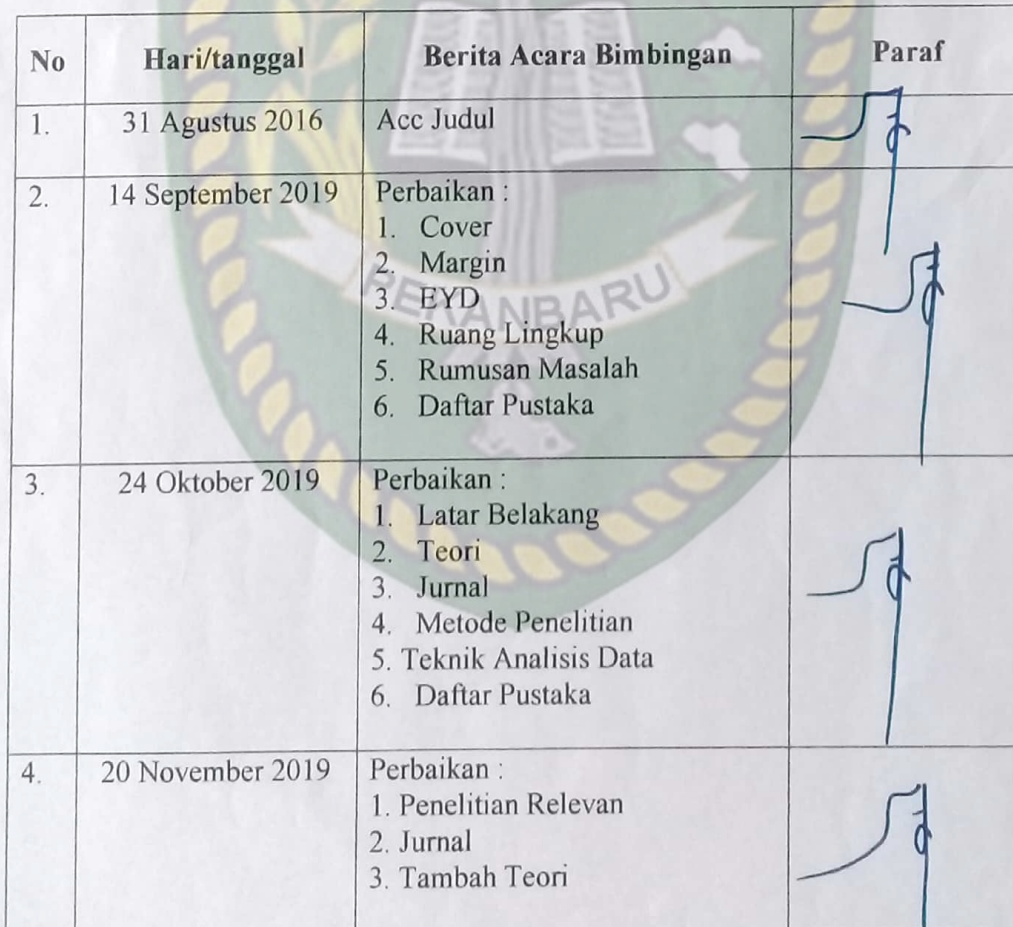 No Hari/tanggal Berita Acara Bimbingan Paraf
1. 31 Agustus 2016 Acc Judul
2. 14 September 2019 Perbaikan :
1. Cover
2. Margin
3. EYD
4. Ruang Lingkup
5. Rumusan Masalah
6. Daftar Pustaka
PEKANBARU
3. 24 Oktober 2019 Perbaikan :
1. Latar Belakang
2. Teori
3. Jurnal
4. Metode Penelitian
5. Teknik Analisis Data
6. Daftar Pustaka
4. 20 November 2019 Perbaikan :
1. Penelitian Relevan
2. Jurnal
3. Tambah Teori